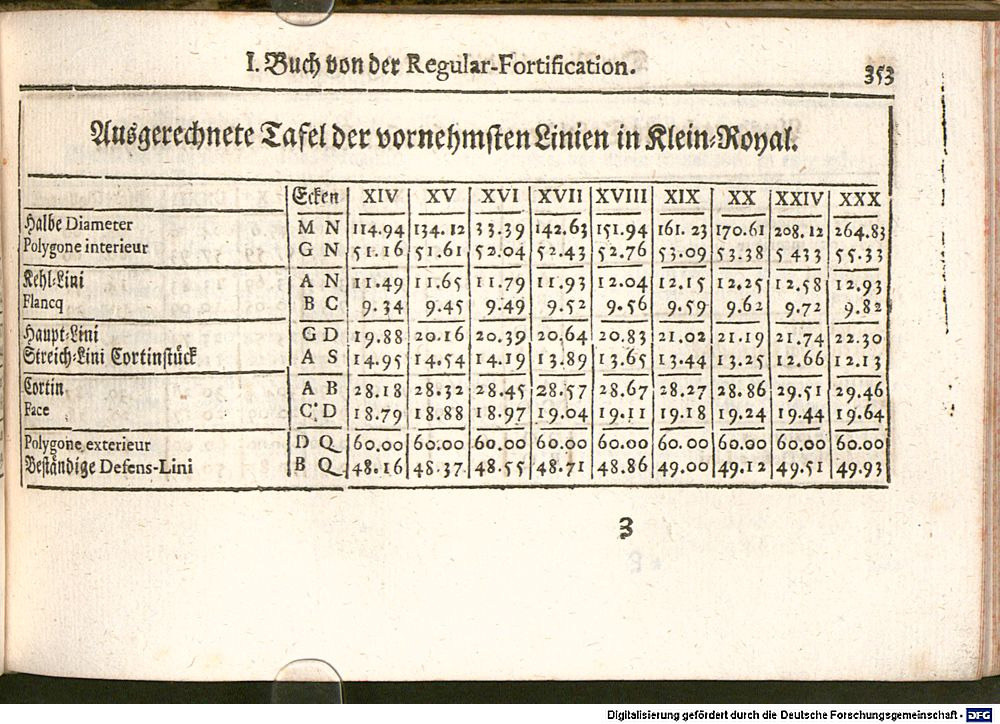 I. Buch von der Regular-Fortification. 353
Ausgerechnete Tafel der vornehmsten Linien in Klein-Royal.
Ecken XIV XV XVI XVII XVIII XIX XX XXIV XXX
Halbe Diameter M N 114.94 134.12 33.39 142.63 151.94 161.23 170.61 208.12 264.83
Polygone interieur G N 51.16 51.61 52.04 52.43 52.76 53.09 53.38 5433 55.33
Kehl-Lini A N 11.49 11.65 11.79 11.93 12.04 12.15 12.25 12.58 12.93
Flancq B C 9.34 9.45 9.49 9.52 9.56 9.59 9.62 9.72 9.82
Haupt-Lini G D 19.88 20.16 20.39 20.64 20.83 21.02 21.19 21.74 22.30
Streich-Lini Cortinstück A S 14.95 14.54 14.19 13.89 13.65 13.44 13.25 12.66 12.13
Cortin A B 28.18 28.32 28.45 28.57 28.67 28.27 28.86 29.51 29.46
Face C D 18.79 18.88 18.97 19.04 19.11 19.18 19.24 19.44 19.64
Polygone exterieur D Q 60.00 60.00 60.00 60.00 60.00 60.00 60.00 60.00 60.00
Beständige Defens-Lini B Q 48.16 48.37 48.55 48.71 48.86 49.00 49.12 49.51 49.93
3
Digitalisierung gefördert durch die Deutsche Forschungsgemeinschaft - DFG